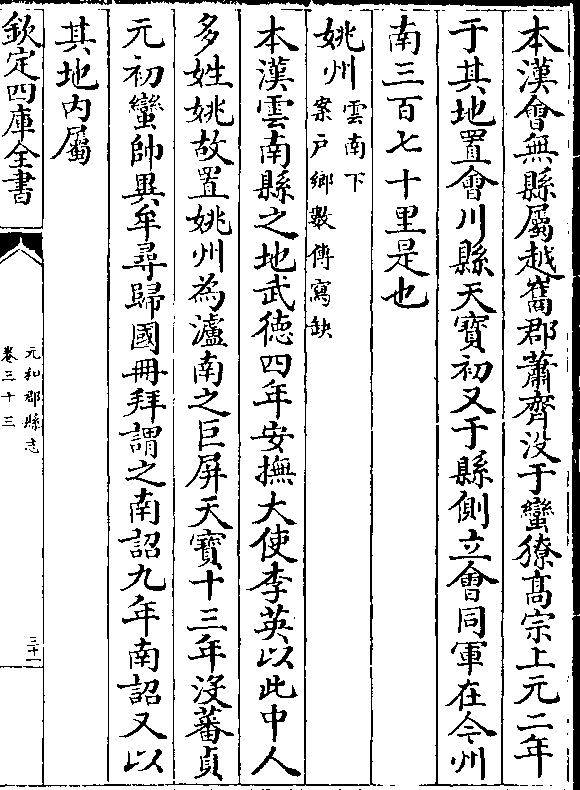 本漢會無縣屬越嶲郡蕭齊没于蠻獠髙宗上元二年
于其地置會川縣天寳初又于縣側立會同軍在今州
南三百七十里是也
姚州雲南下
案戸鄉數傳寫缺
本漢雲南縣之地武徳四年安撫大使李英以此中人
多姓姚故置姚州為瀘南之巨屏天寳十三年没蕃貞
元初蠻帥異牟尋歸國冊拜謂之南詔九年南詔又以
其地内屬
欽定四庫全書
元和郡縣志
卷三十三
三十一